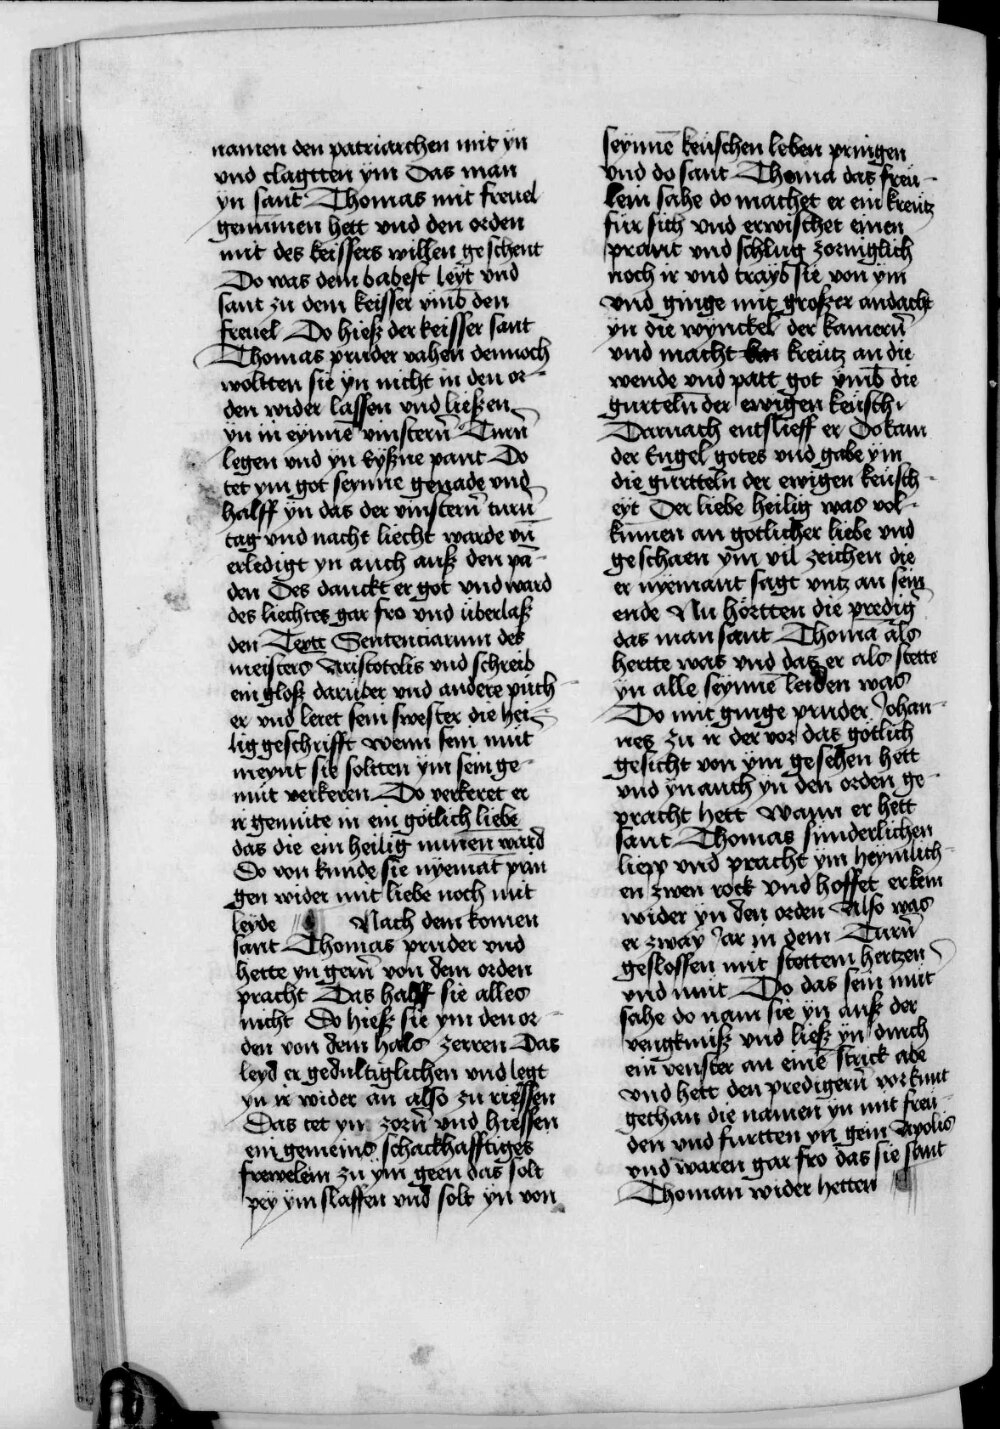 namen den patriarchen mit yn
vnd clagtten ym Das man
yn sant Thomas mit freuel
genummen hett vnd den orden
mit des keissers willen geschent
Do was dem babest leyt vnd
sant zu dem keisser vmb den
freuel Do hiesz der keisser sant
Thomas pruder vahen dennoch
woltten sie yn nicht in den or-
den wider lassen vnd lieszen
yn in eynnē vinsterñ Turñ
legen vnd yn Eyszne pant Do
tet ym got seynne genade vnd
halff yn das der vinsterñ turñ
tag vnd nacht liecht warde vñ
erledigt yn auch ausz den pā-
den Des danckt er got vnd ward
des liechtes gar fro vnd überlasz
den Texte Sentenciarum des
meisters Aristotelis vnd schreib
ein glosz darüber vnd andere püch-
er vnd leret sein swester die hei-
lig geschrifft wenn sein mut
meynt sie soltten ym sein ge-
müt verkeren Do verkeret er
ir gemüte in ein götlich liebe
das die ein heilig nunen ward
Do von kunde sie nyemāt prin
gen wider mit liebe noch mit
leyde Nach dem komen
sant Thomas pruder vnd
hette yn gerñ von dem orden
pracht Das halff sie alles
nicht Do hiesz sie ym den or-
den von dem hals zerren Das
leyd er gedultiglichen vnd legt
yn ir wider an also zu rieffen
Das tet yn zorñ vnd hiessen
ein gemeins schackhafftiges
frewelein zu ym geen das solt
pey ym slaffen vnd solt yn von
seynnē keüschen leben pringen
vnd do sant Thoma das freü-
lein sahe do machet er ein kreütz
für sich vnd erwischet einen
prant vnd schlug zorniglich
noch ir vnd trayb sie von ym
vnd ginge mit groszer andacht
yn die wynckel der kamerñ
vnd macht kreütz an die
wende vnd patt got vmb die
gurtelñ der ewigen keüsch
Darnach entslieff er Do kam
der Engel gotes vnd gabe ym
die gurtteln der ewigen keüsch-
eyt Der liebe heilig was vol-
kummen an götlicher liebe vnd
geschaen ym vil zeichen die
er nyemant sagt vntz an sein
ende Nu hörtten die predig
das man sant Thoma als
hertte was vnd das er als stette
yn alle seynnē leiden was
Do mit ginge pruder Johan-
nes zu ir der vor das götlich
gesicht von ym gesehen hett
vnd yn auch yn den orden ge-
pracht hett Wann er hett
sant Thomas sunderlichen
liepp vnd pracht ym heymlich-
en zwen rock vnd hoffet er kem
wider yn den orden Also was
er zway Jar in dem Turñ
geslossen mit stettem hertzen
vnd mut Do das sein mut
sahe do nam sie yn ausz der
vengknusz vnd liesz yn durch
ein venster an einē strick abe
vnd hett den predigerñ vor kunt
gethan die namen yn mit freü-
den vnd furtten yn gein Apolis
vnd waren gar fro das sie sant
Thoman wider hetten